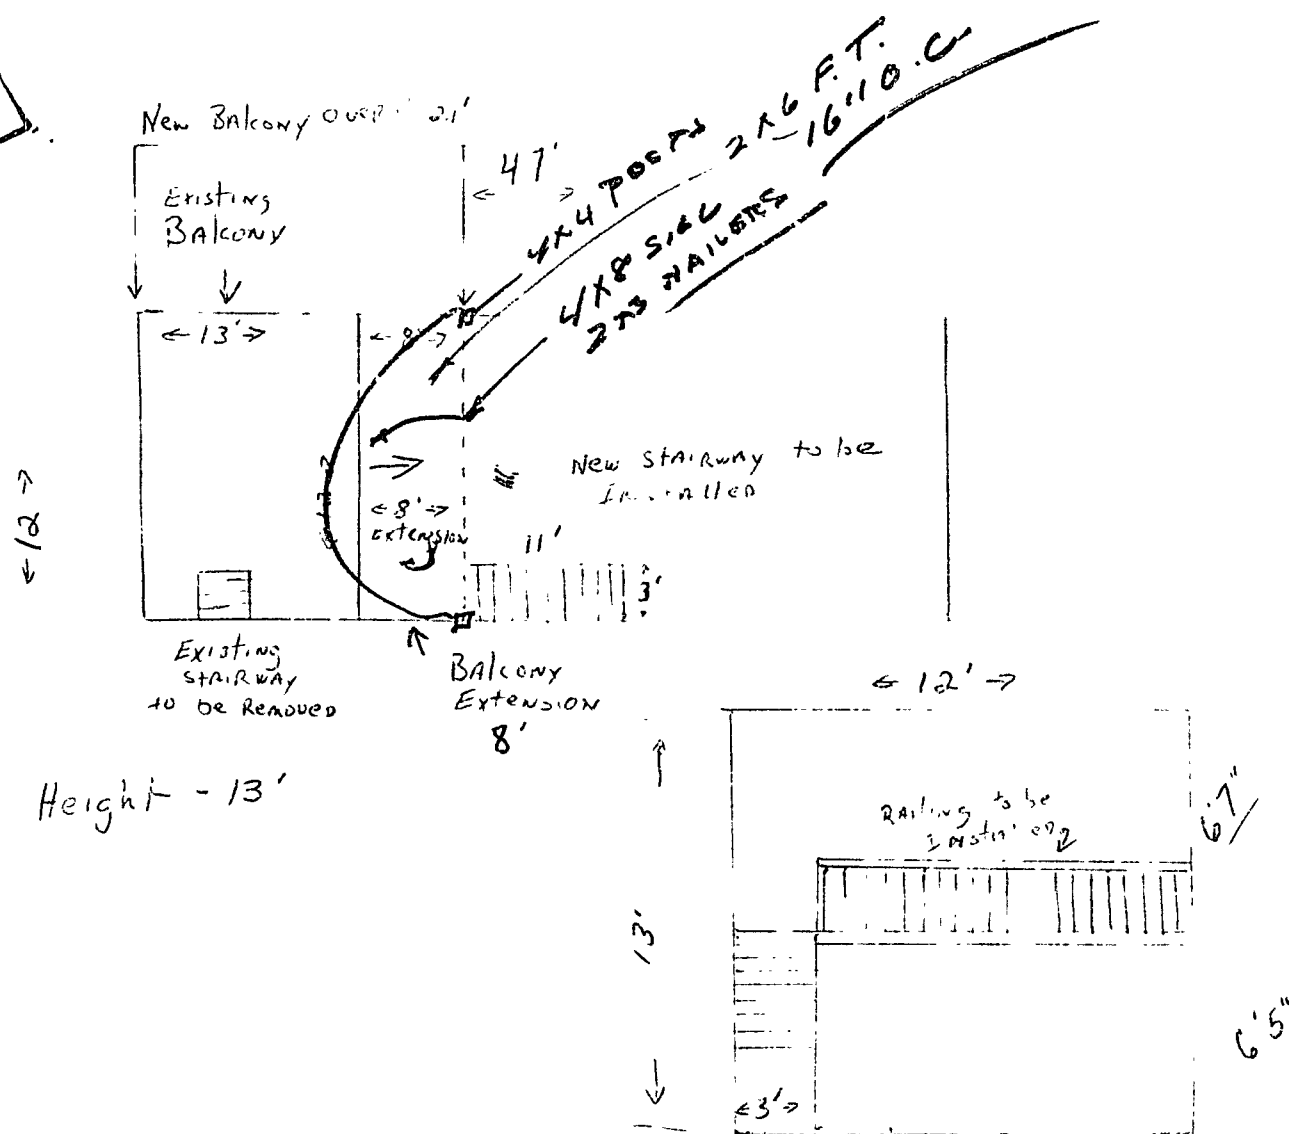 New Balcony over 21'
47'
Existing
Balcony
4x4 Posts
2x6 F.T.
-16"O.C.
4x8
2x3 NAILERS
← 13' →
← 8' →
← 12 →
New Stairway to be
← 8' →
Extension
11'
3'
Existing
Stairway
to be Removed
Balcony
Extension
8'
Height - 13'
← 12' →
Railing to be
6'7"
13'
6'5"
← 3' →